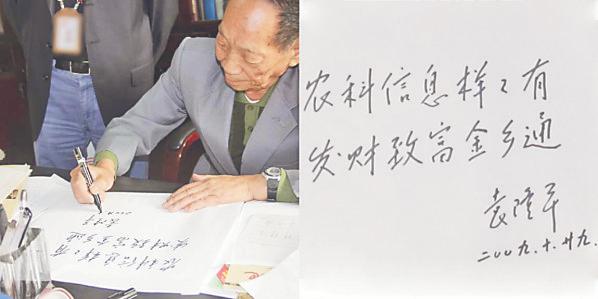 农科信息样々有
发财致富金乡通
袁隆平
二〇〇九.十.廿九.